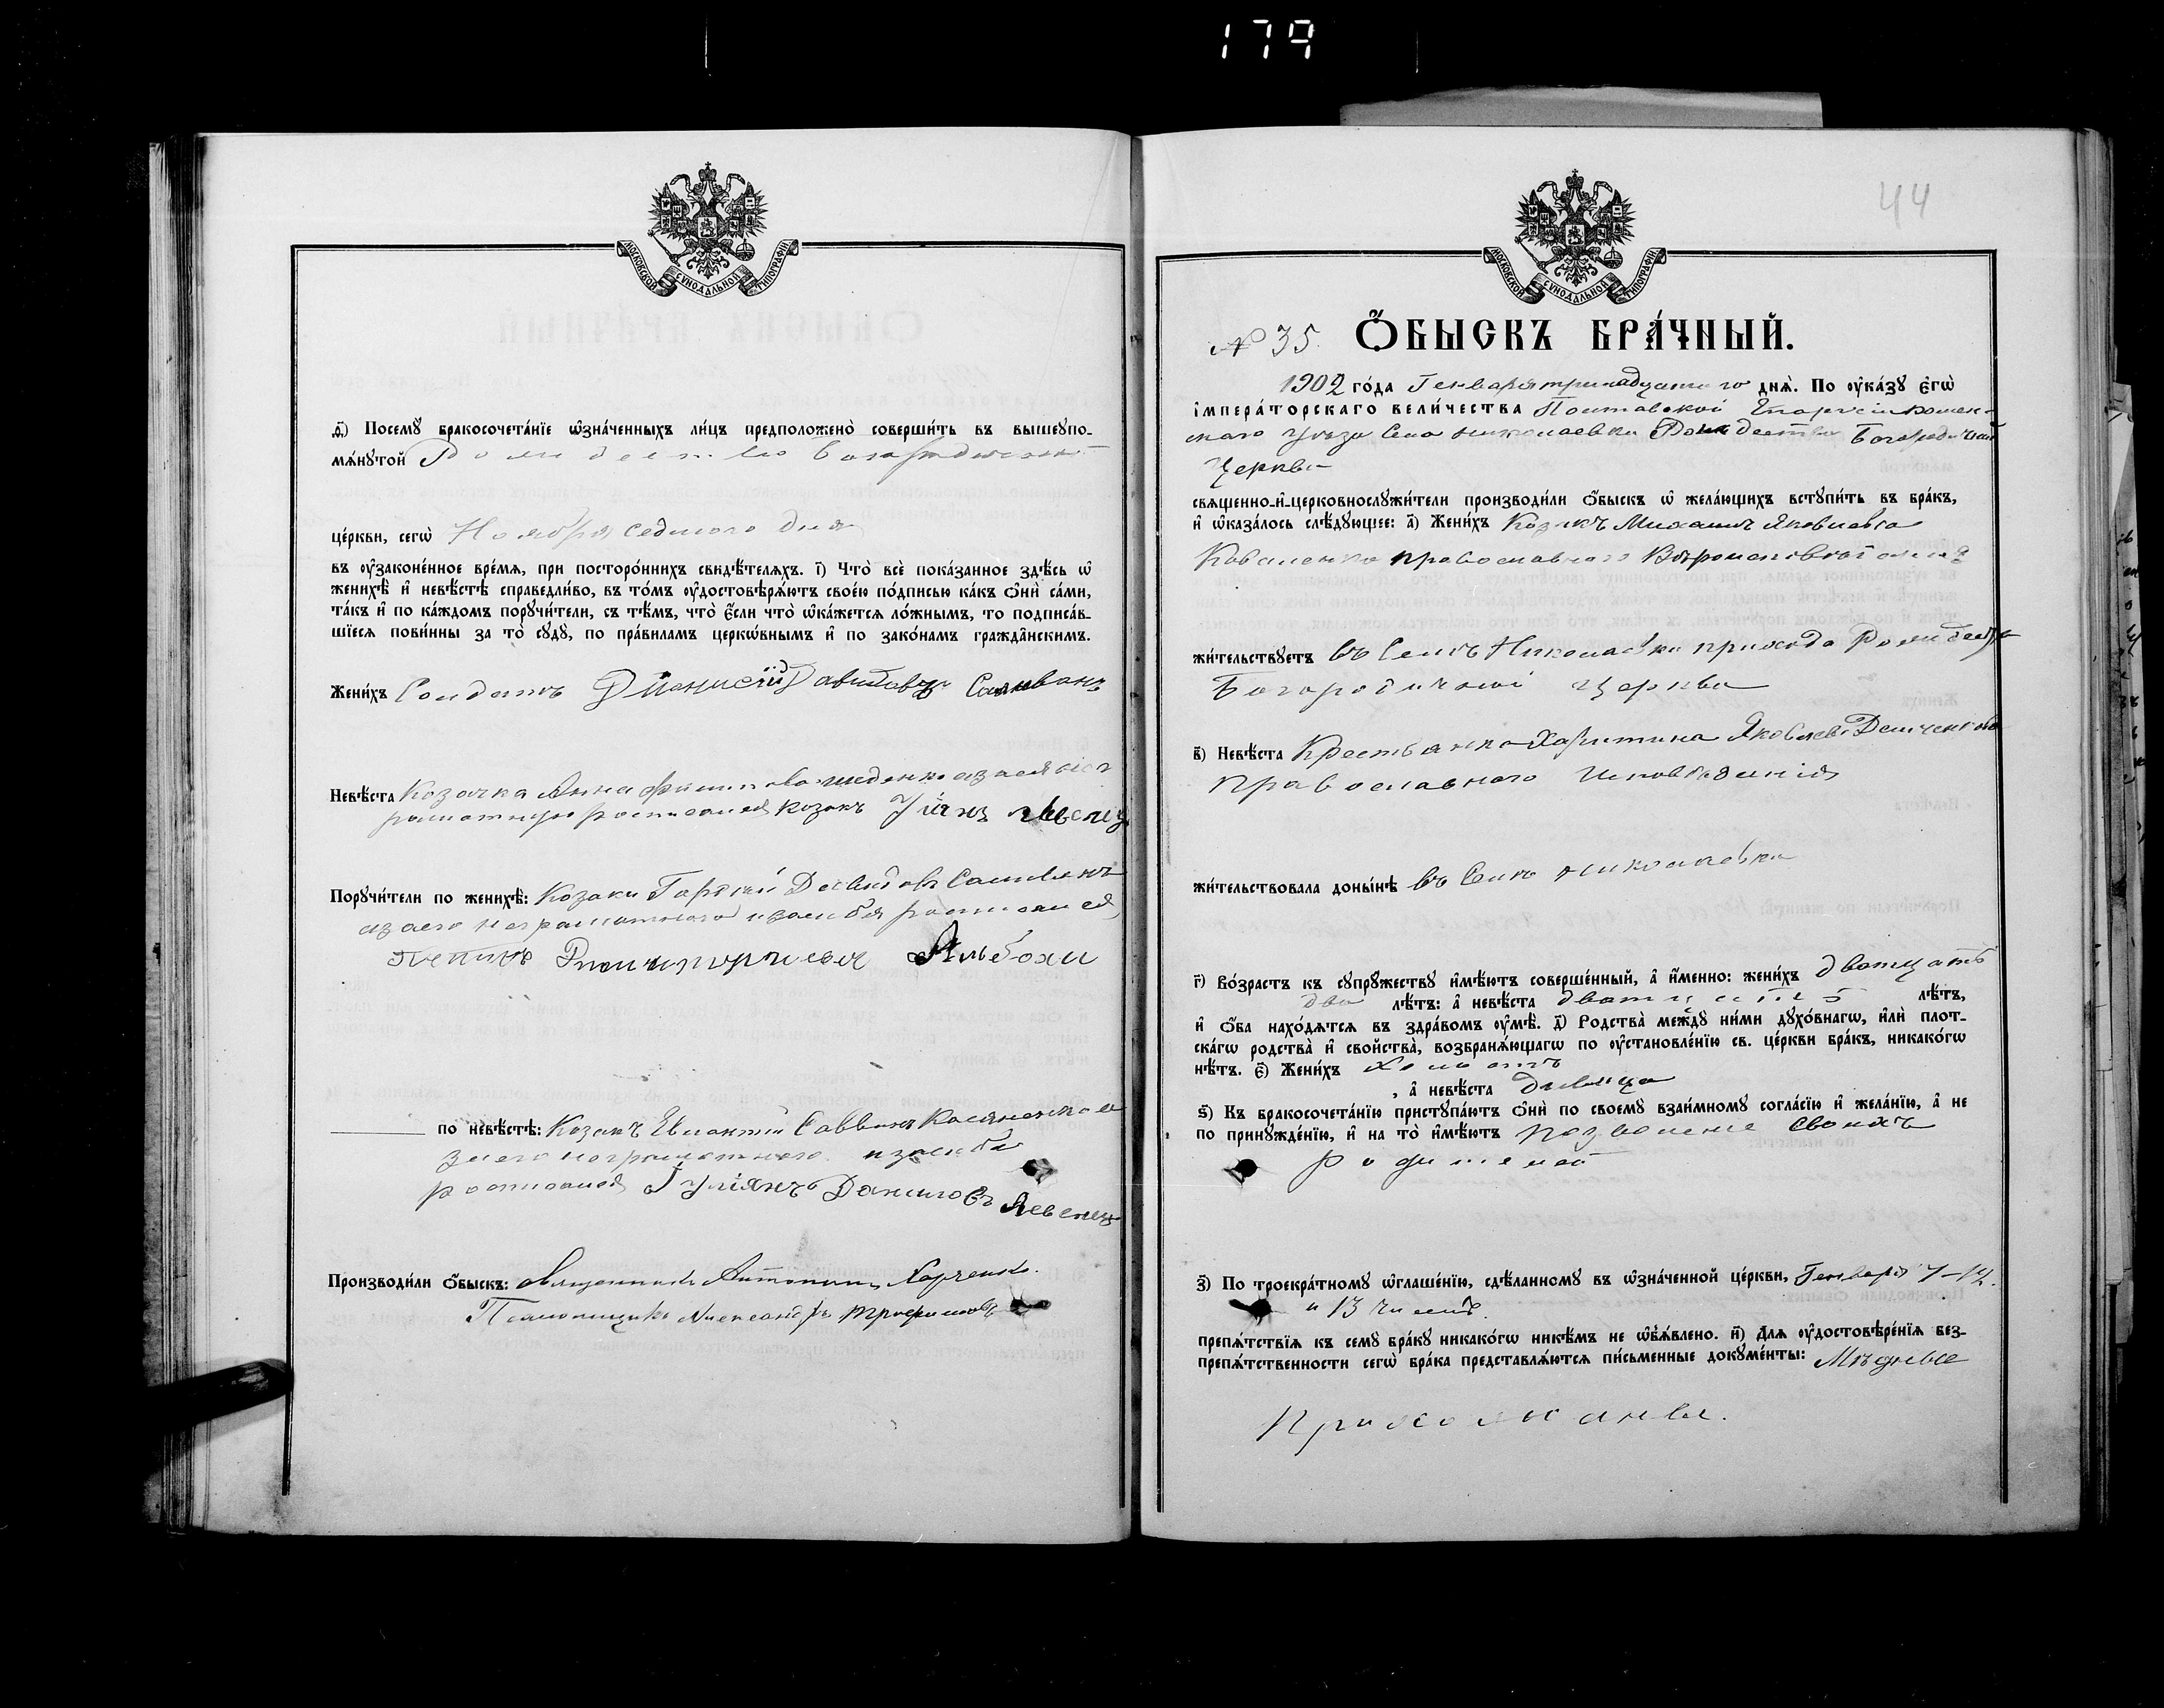 179
МОСКОВСКОЙ СУНОДАЛЬНОЙ ТИПОГРАФІИ
ѳ҃) Посемꙋ бракосочета́нїе ѡ҆зна́ченныхъ ли́цъ предположено̀ соверши́ть въ вышеупо-
мѧ́нутой Рождество Богородичной
це́ркви, сегѡ̀ Ноября седмого дня
въ ᲂу҆законе́нное вре́мѧ, при посторо́ннихъ свидѣ́телѧхъ. і҃) Что̀ всѐ пока́занное здѣ́сь ѡ҆
женихѣ̀ и҆ невѣ́стѣ справедли́во, въ то́мъ ᲂу҆достовѣрѧ́ютъ свое́ю по́дписью ка́къ ѻ҆нѝ са́ми,
та́къ и҆ по ка́ждомъ порꙋчи́тели, съ тѣ́мъ, что̀ є҆́сли что̀ ѡ҆ка́жетсѧ ло́жнымъ, то подписа́в-
шїесѧ пови́нны за то̀ сꙋдꙋ̀, по пра́виламъ церкѡ́внымъ и҆ по зако́намъ гражда̑нскимъ.
Жени́хъ Солдатъ Діонисій Давидовъ
Невѣ́ста Козачка Анна
росписался козакъ
Порꙋчи́тели по женихѣ̀: Козаки Давидовъ
неграмотного
по невѣ́стѣ: Козакъ Саввинъ
неграмотного
росписался Іуліянъ Даниловъ
Производи́ли ѻ҆́быскъ: Священникъ Харченко.
Псаломщикъ Александръ Трофимовъ
44
МОСКОВСКОЙ СУНОДАЛЬНОЙ ТИПОГРАФІИ
№ 35. Ѻ҆́БЫСКЪ БРА́ЧНЫЙ.
1902 го́да Генваря тринадцатого днѧ̀. По ᲂу҆ка́зꙋ є҆гѡ̀
і҆мпера́торскаго вели́чества Полтавской Епархіи Ромен-
ского уезда Села Николаевки Рождество Богородичной
Церкви
свѧщенно-и҆-церковнослꙋжи́тели производи́ли ѻ҆́быскъ ѡ҆ жела́ющихъ встꙋпи́ть въ бра́къ,
и҆ ѡ҆каза́лось слѣ́дꙋющее: а҃) Жени́хъ Козакъ Михаилъ Яковлевъ
Коваленко православного Вѣроисповѣданія
жи́тельствꙋетъ въ Селѣ Николаевки прихода Рождества
Богородичной церкви
в҃) Невѣ́ста Крестьянка Харитина Яковлева Демченкова
православного исповѣданія
жи́тельствовала доны́нѣ въ Селѣ Николаевки
г҃) Во́зрастъ къ сꙋпрꙋ́жествꙋ и҆мѣ́ютъ соверше́нный, а҆ и҆́менно: жени́хъ двотцать
два лѣ́тъ: а҆ невѣ́ста двотцать лѣ́тъ,
и҆ ѻ҆́ба нахо́дѧтсѧ въ здра́вомъ ᲂу҆мѣ̀. д҃) Родства̀ междꙋ̀ ни́ми дꙋхо́внагѡ, и҆лѝ плот-
ска́гѡ родства̀ и҆ свойства̀, возбранѧ́ющагѡ по ᲂу҆становле́нїю св. це́ркви бра́къ, никако́гѡ
нѣ́тъ. є҃) Жени́хъ Холостъ
, а҆ невѣ́ста дивица
ѕ҃) Къ бракосочета́нїю пристꙋпа́ютъ ѻ҆нѝ по своемꙋ̀ взаи́мномꙋ согла́сїю и҆ жела́нїю, а҆ не
по принꙋжде́нїю, и҆ на то̀ и҆мѣ́ютъ позволение своихъ
родителей
з҃) По троекра́тномꙋ ѡ҆глаше́нїю, сдѣ́ланномꙋ въ ѡ҆зна́ченной це́ркви, Генваря
и 13 чиселъ
препѧ́тствїѧ къ семꙋ̀ бра́кꙋ никако́гѡ никѣ́мъ не ѡ҆б̾ѧ́влено. и҃) Длѧ ᲂу҆достовѣре́нїѧ без-
препѧ́тственности сегѡ̀ бра́ка представлѧ́ютсѧ пи́сьменные докꙋме́нты: Мѣсные
Прихожаны.